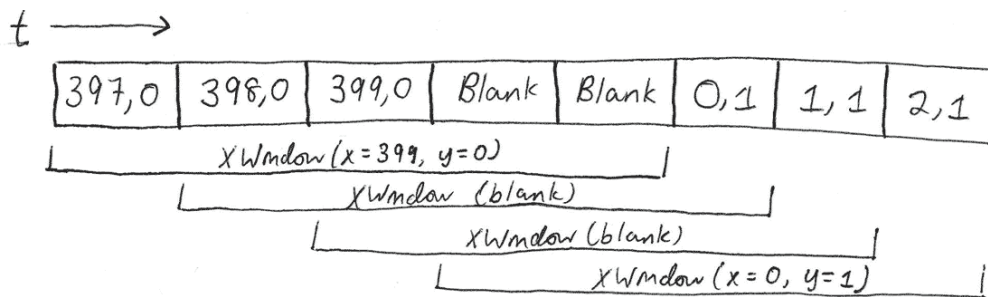 t
397,0 398,0 399,0 Blank Blank 0,1 1,1 2,1
XWindow(x=399, y=0)
XWindow (blank)
XWindow (blank)
XWindow(x=0, y=1)